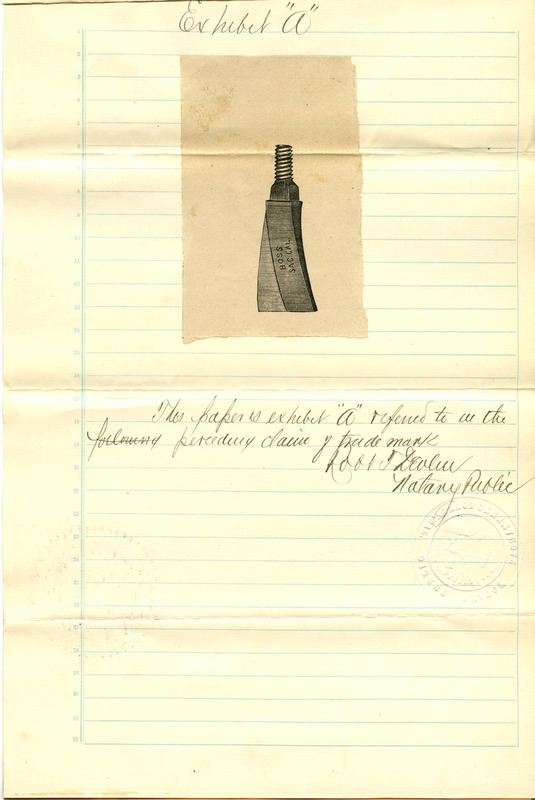 Exhibit "A"
BOSS
SAC CAL.
This paper is exhibit "A" refered to in the
following perceding claim of trade mark
Robt T Devlin
Notary Public